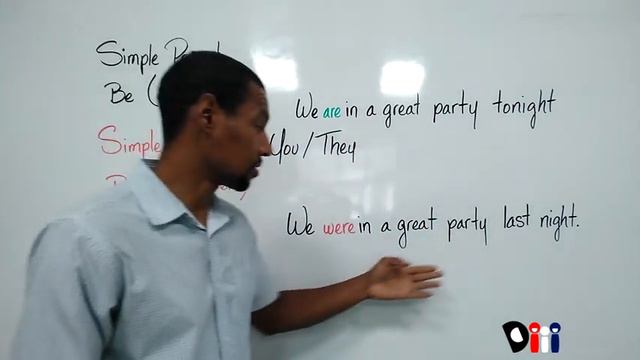 Simple
Be (
We are in a great party tonight
Simple
You/They
We were in a great party last night.
Diii